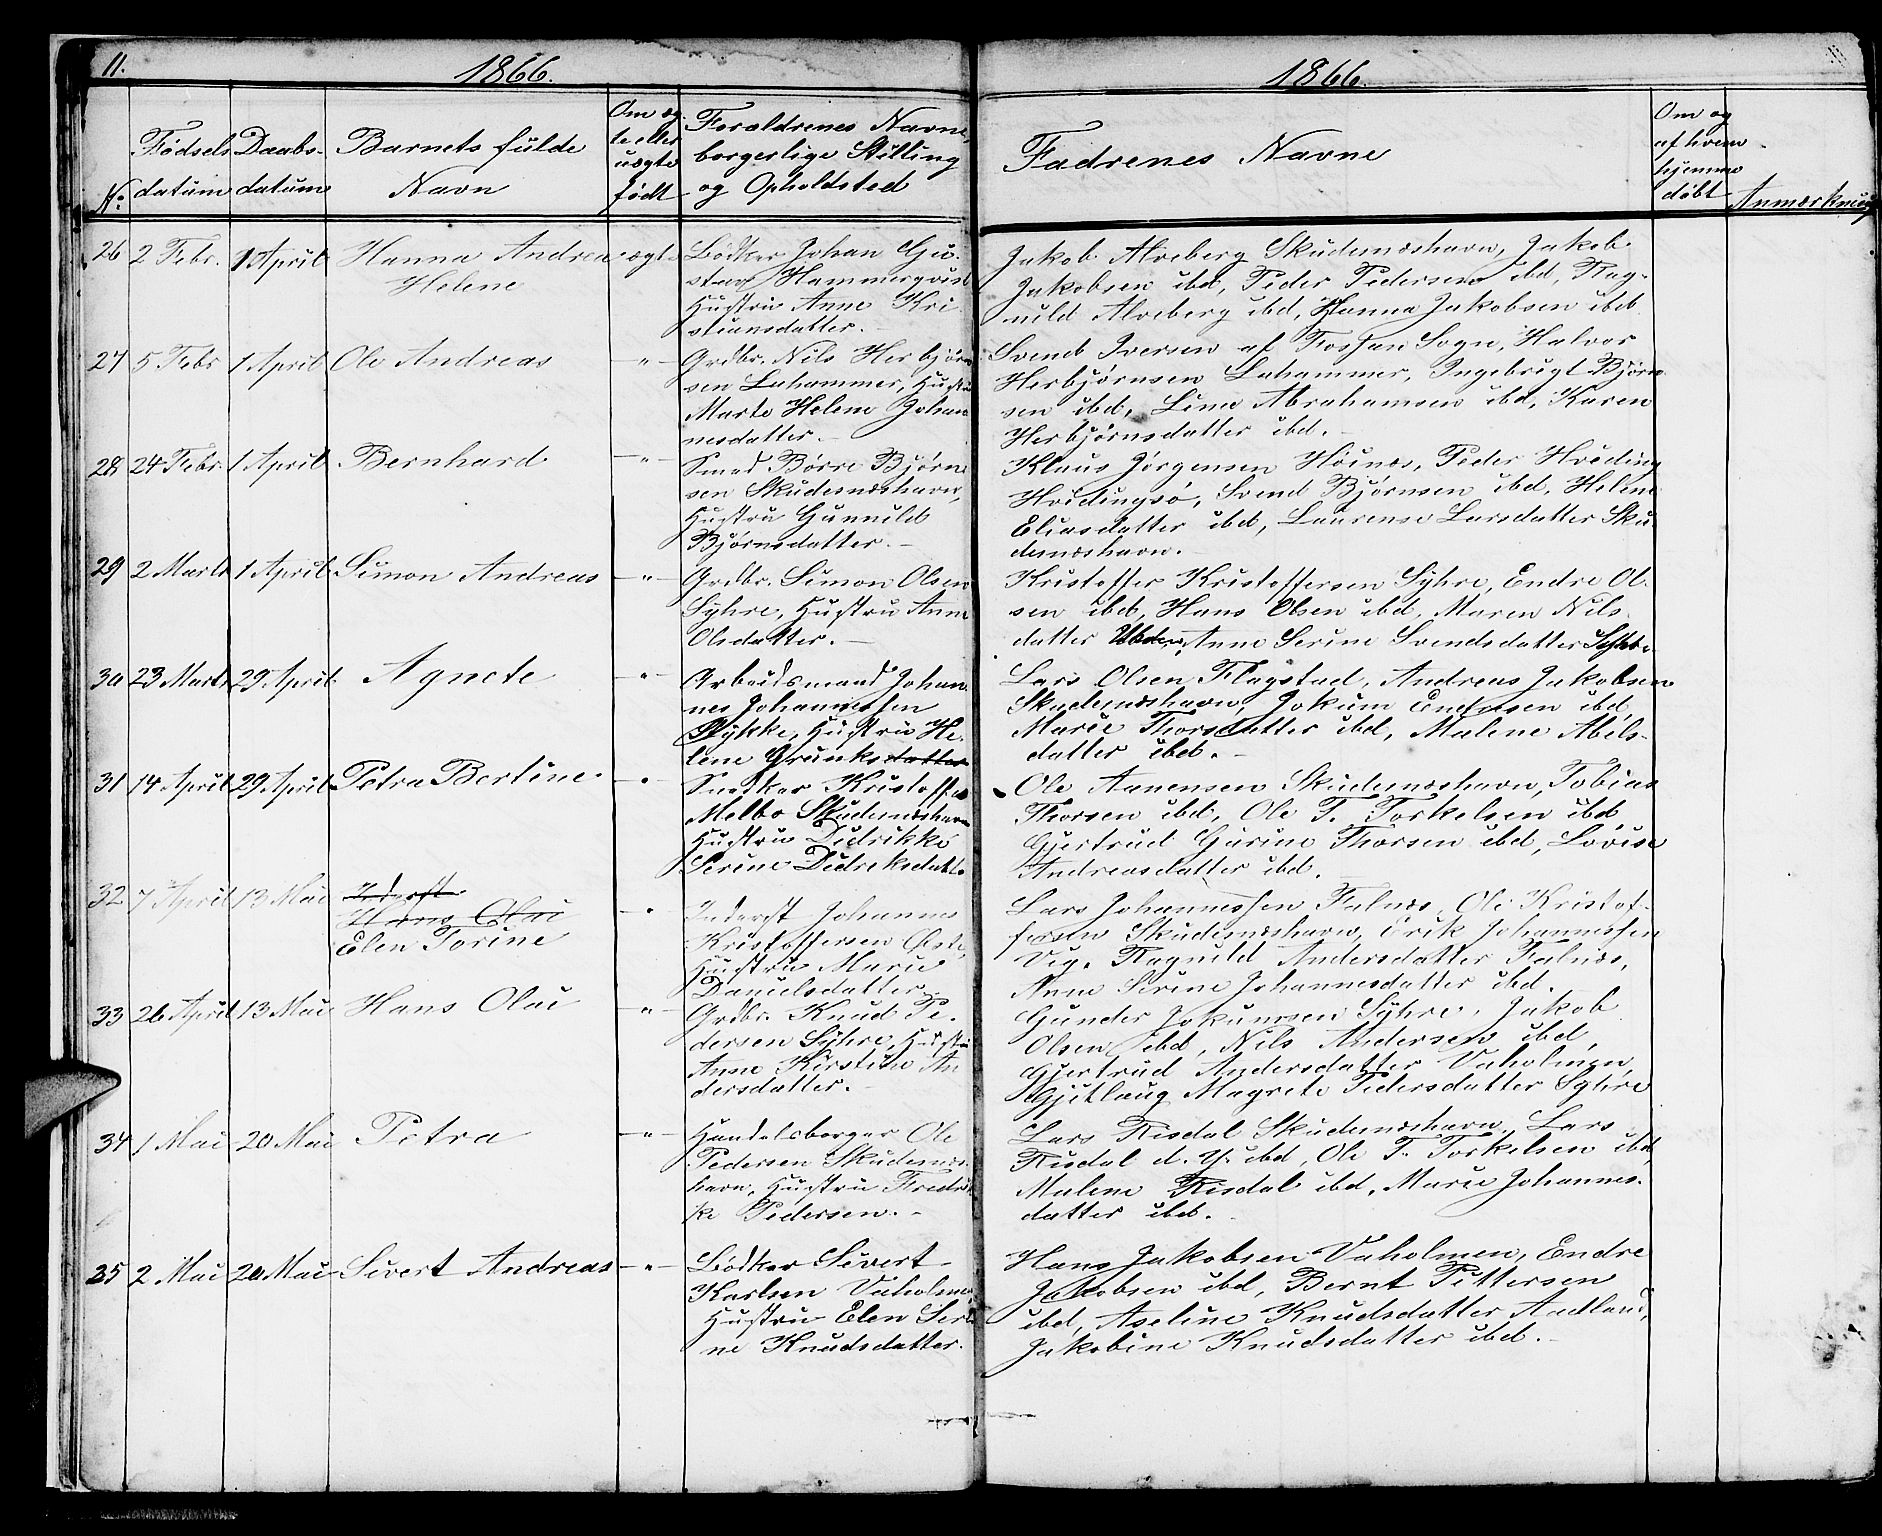 11.
1866.
1866.
No.
Fødsels
datum
Daabs-
datum
Barnets fulde
Navn
Om æg-
te eller
uægte
født
Forældrenes Navne,
borgerlige Stilling
og Opholdsted
Fadrenes Navne
Om og
af hvem
hjemme
døbt
Anmærkning
26 2 Febr. 1 April Hanna Andrea ægte Bødker Johan Gu-
Helene
stav Hammerqvist
Hustru Anne Kri
stiansdatter.
Jakob Alveberg Skudesnæshavn, Jakob
Jakobsen ibd, Peder Pedersen ibd, Rag-
nild Alveberg ibd, Hanna Jakobsen ibd
27 5 Febr 1 April Ole Andreas -"- Grdbr. Nils Herbjørn
sen Lahammer, Hustru
Marte Helene Johan
nesdatter.
Svend Iversen af Fosfan Sogn, Halvor
Herbjørnsen Lahammer, Ingebrigt Bjørn
sen ibd, Line Abrahamsen ibd, Karen
Herbjørnsdatter ibd.
28 24 Febr. 1 April Bernhard -"- Smed Børre Bjørn
sen Skudesnæshavn,
Hustru Gunnild
Bjørnsdatter.
Klaus Jørgensen Høines, Peder Hviding
Hvidingsø, Svend Bjørnsen ibd, Helene
Eliasdatter ibd, Laurense Larsdatter Sku
desnæshavn.
29 2 Marts 1 April Simon Andreas -"- Grdbr. Simon Olsen
Syhre, Hustru Anne
Olsdatter.
Kristoffer Kristoffersen Syhre, Endre Ol-
sen ibd, Hans Olsen ibd, Maren Nils
datter Anne Serine Svendsdatter Syhre.
30 23 Marts 29 April Agnete -"- Arbeidsmand Johan
nes Johannessen
Stykke, Hustru He-
lene Grunksdatter
Lars Olsen Flagstad, Andreas Jakobsen
Skudesnæshavn, Jokum Endresen ibd
Marie Thorsdatter ibd, Malene Abels-
datter ibd.
31 14 April 29 April Petra Bertine -"- Snedker Kristoffer
Melbo Skudesnæshavn
Hustru Didrikke
Serine Didriksdatt.
Ole Aanensen Skudesnæshavn, Tobias
Thorsen ibd, Ole T. Torkelsen ibd
Gjertrud Gurine Thorsen ibd, Lovise
Andreasdatter ibd.
32 7 April 13 Mai Inderst
Hans Olai
Elen Torine
-"- Inderst Johannes
Kristoffersen
Hustru Marie
Danielsdatter.
Lars Johannessen Falnes, Ole Kristof-
fersen Skudesnæshavn, Erik Johannessen
Vig, Ragnild Andersdatter Falnes,
Anne Serine Johannesdatter ibd.
33 26 April 13 Mai Hans Olai -"- Grdbr. Knud Pe-
dersen Syhre, Hustru
Anne Kirstine An
dersdatter.
Gunder Jokumsen Syhre, Jakob
Olsen ibd, Nils Andersen ibd,
Gjertrud Andersdatter Vaholmen,
Gjitlaug Magrete Pedersdatter Syhre
34 1 Mai 20 Mai Petra -"- Handelsborger Ole
Pedersen Skudesnæs-
havn, Hustru Fredri
ke Pedersen.
Lars Risdal Skudesnæshavn, Lars
Risdal d. Y. ibd, Ole T. Torkelsen ibd,
Malene Risdal ibd, Marie Johannes-
datter ibd.
35 2 Mai 20 Mai Sivert Andreas -"- Bødker Sivert
Karlsen Vaholmen,
Hustru Elen Seri
ne Knudsdatter.
Hans Jakobsen Vaholmen, Endre
Jakobsen ibd, Bernt Pettersen
ibd, Aseline Knudsdatter Aadland,
Jakobine Knudsdatter ibd.